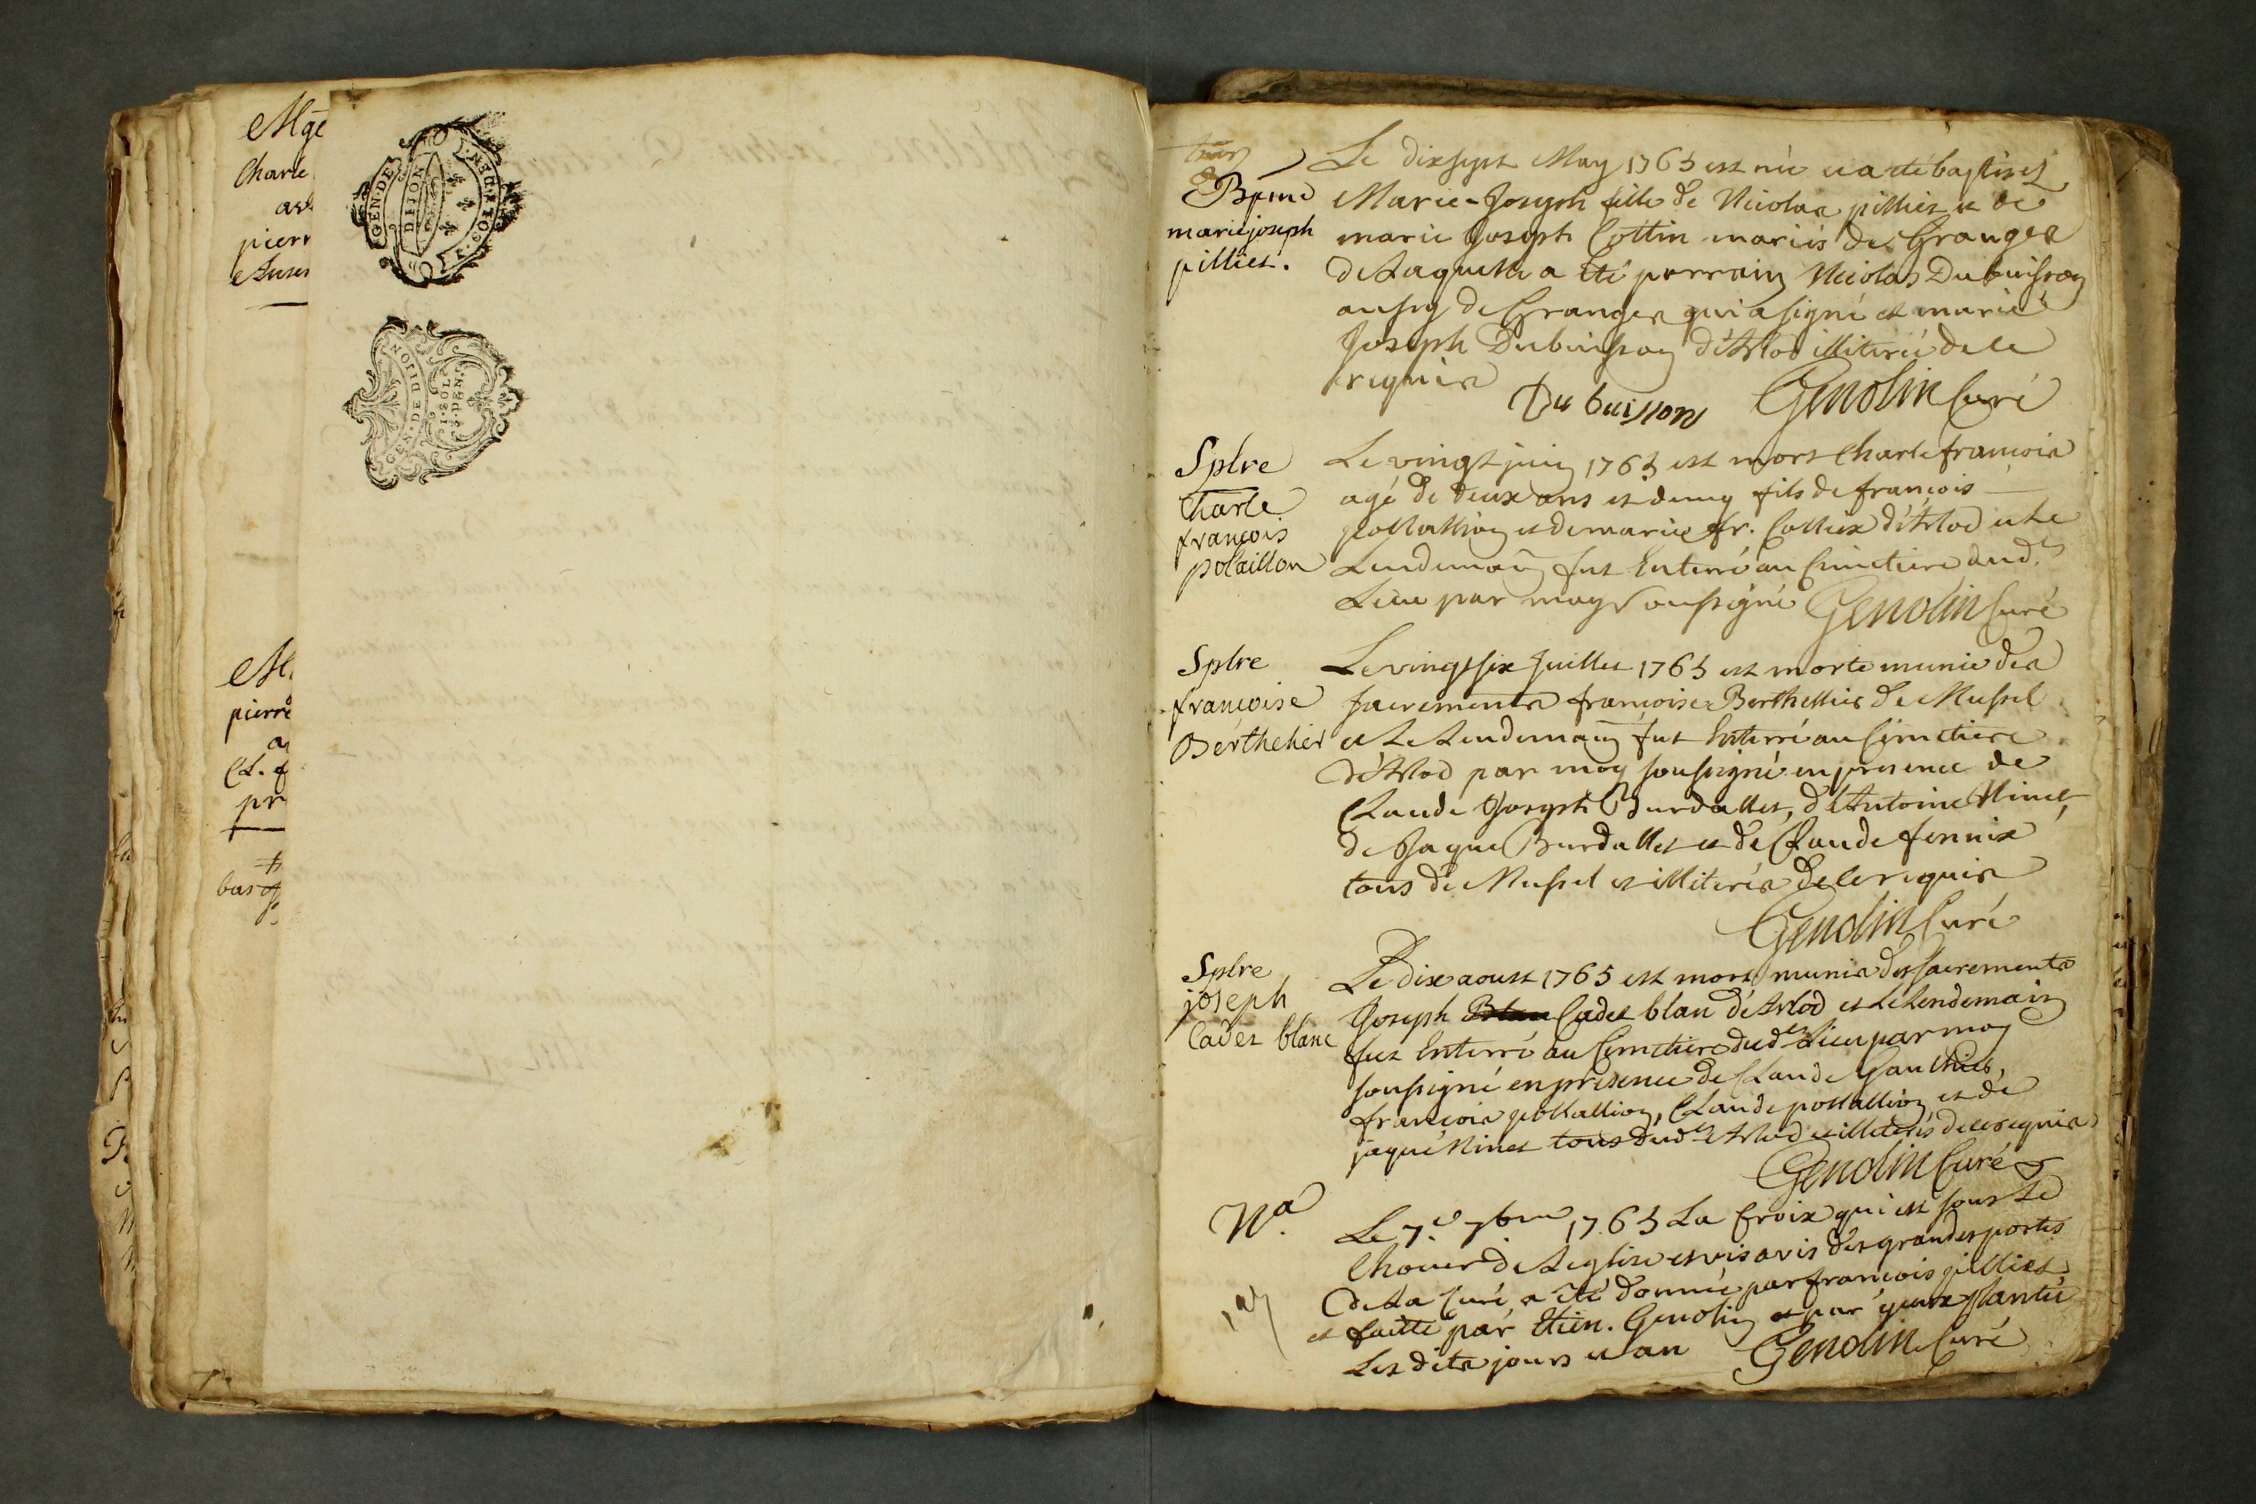 Mge
Charle
pierr
M
pierre
Cl. f
pr
bas
GEN·DE
DIJION
GEN·DE DIJON
Bpme
marie joseph
pilliet.
Le dixsept May 1765 est née et a été baptisée
Marie-Joseph fille de Nicolas pilliet et de
marie Joseph Cottin mariés de Granges
de laquelle a été parrain Nicolas Dubuisson
aussy de Granges qui a signé et marie
Joseph Dubuisson d'Arlod illiterée de ce
requis
Du buisson Genolin Curé
Splre
Charle
françois
polaillon
Le vingt juin 1765 est mort Charle françois
agé de deux ans et demy fils de françois
pollallion et de marie fr. Collux d'Arlod et le
Lendemain fut Enterré au Cimetiere dud.
Lieu par moy soussigné Genolin Curé
Splre
françoise
Berthelier
Le vingt six Juillet 1765 est morte munie des
sacrements françoise Berthellier de Mussel
et le Lendemain fut Enterré au Cimetiere
d'Arlod par moy soussigné en presence de
Claude Joseph Burdallet, d'Antoine Ninet
de Jaque Burdallet et de Claude fennix
tous de Mussel et illiterés de ce requis
Genolin Curé
Splre
joseph
Cadet blanc
Le dix aoust 1765 est mort munis des sacrements
Joseph Blan Cadet blan d'Arlod et le Lendemain
fut Enterré au Cimetiere dud. Lieu par moy
soussigné en presence de Claude Gauthier,
françois pollallion, Claude pollallion et de
jaque Ninet tous dud. Arlod et illiterés de ce requis
Genolin Curé
Na.
Le 7.e 7bre 1765 La Croix qui est sous le
Chœur de l'eglise et vis a vis des grandes portes
de la Cure a été donnée par françois pilliet
et faitte par Etien. Genolin et par yeux plantée
Les dits jours et an Genolin Curé